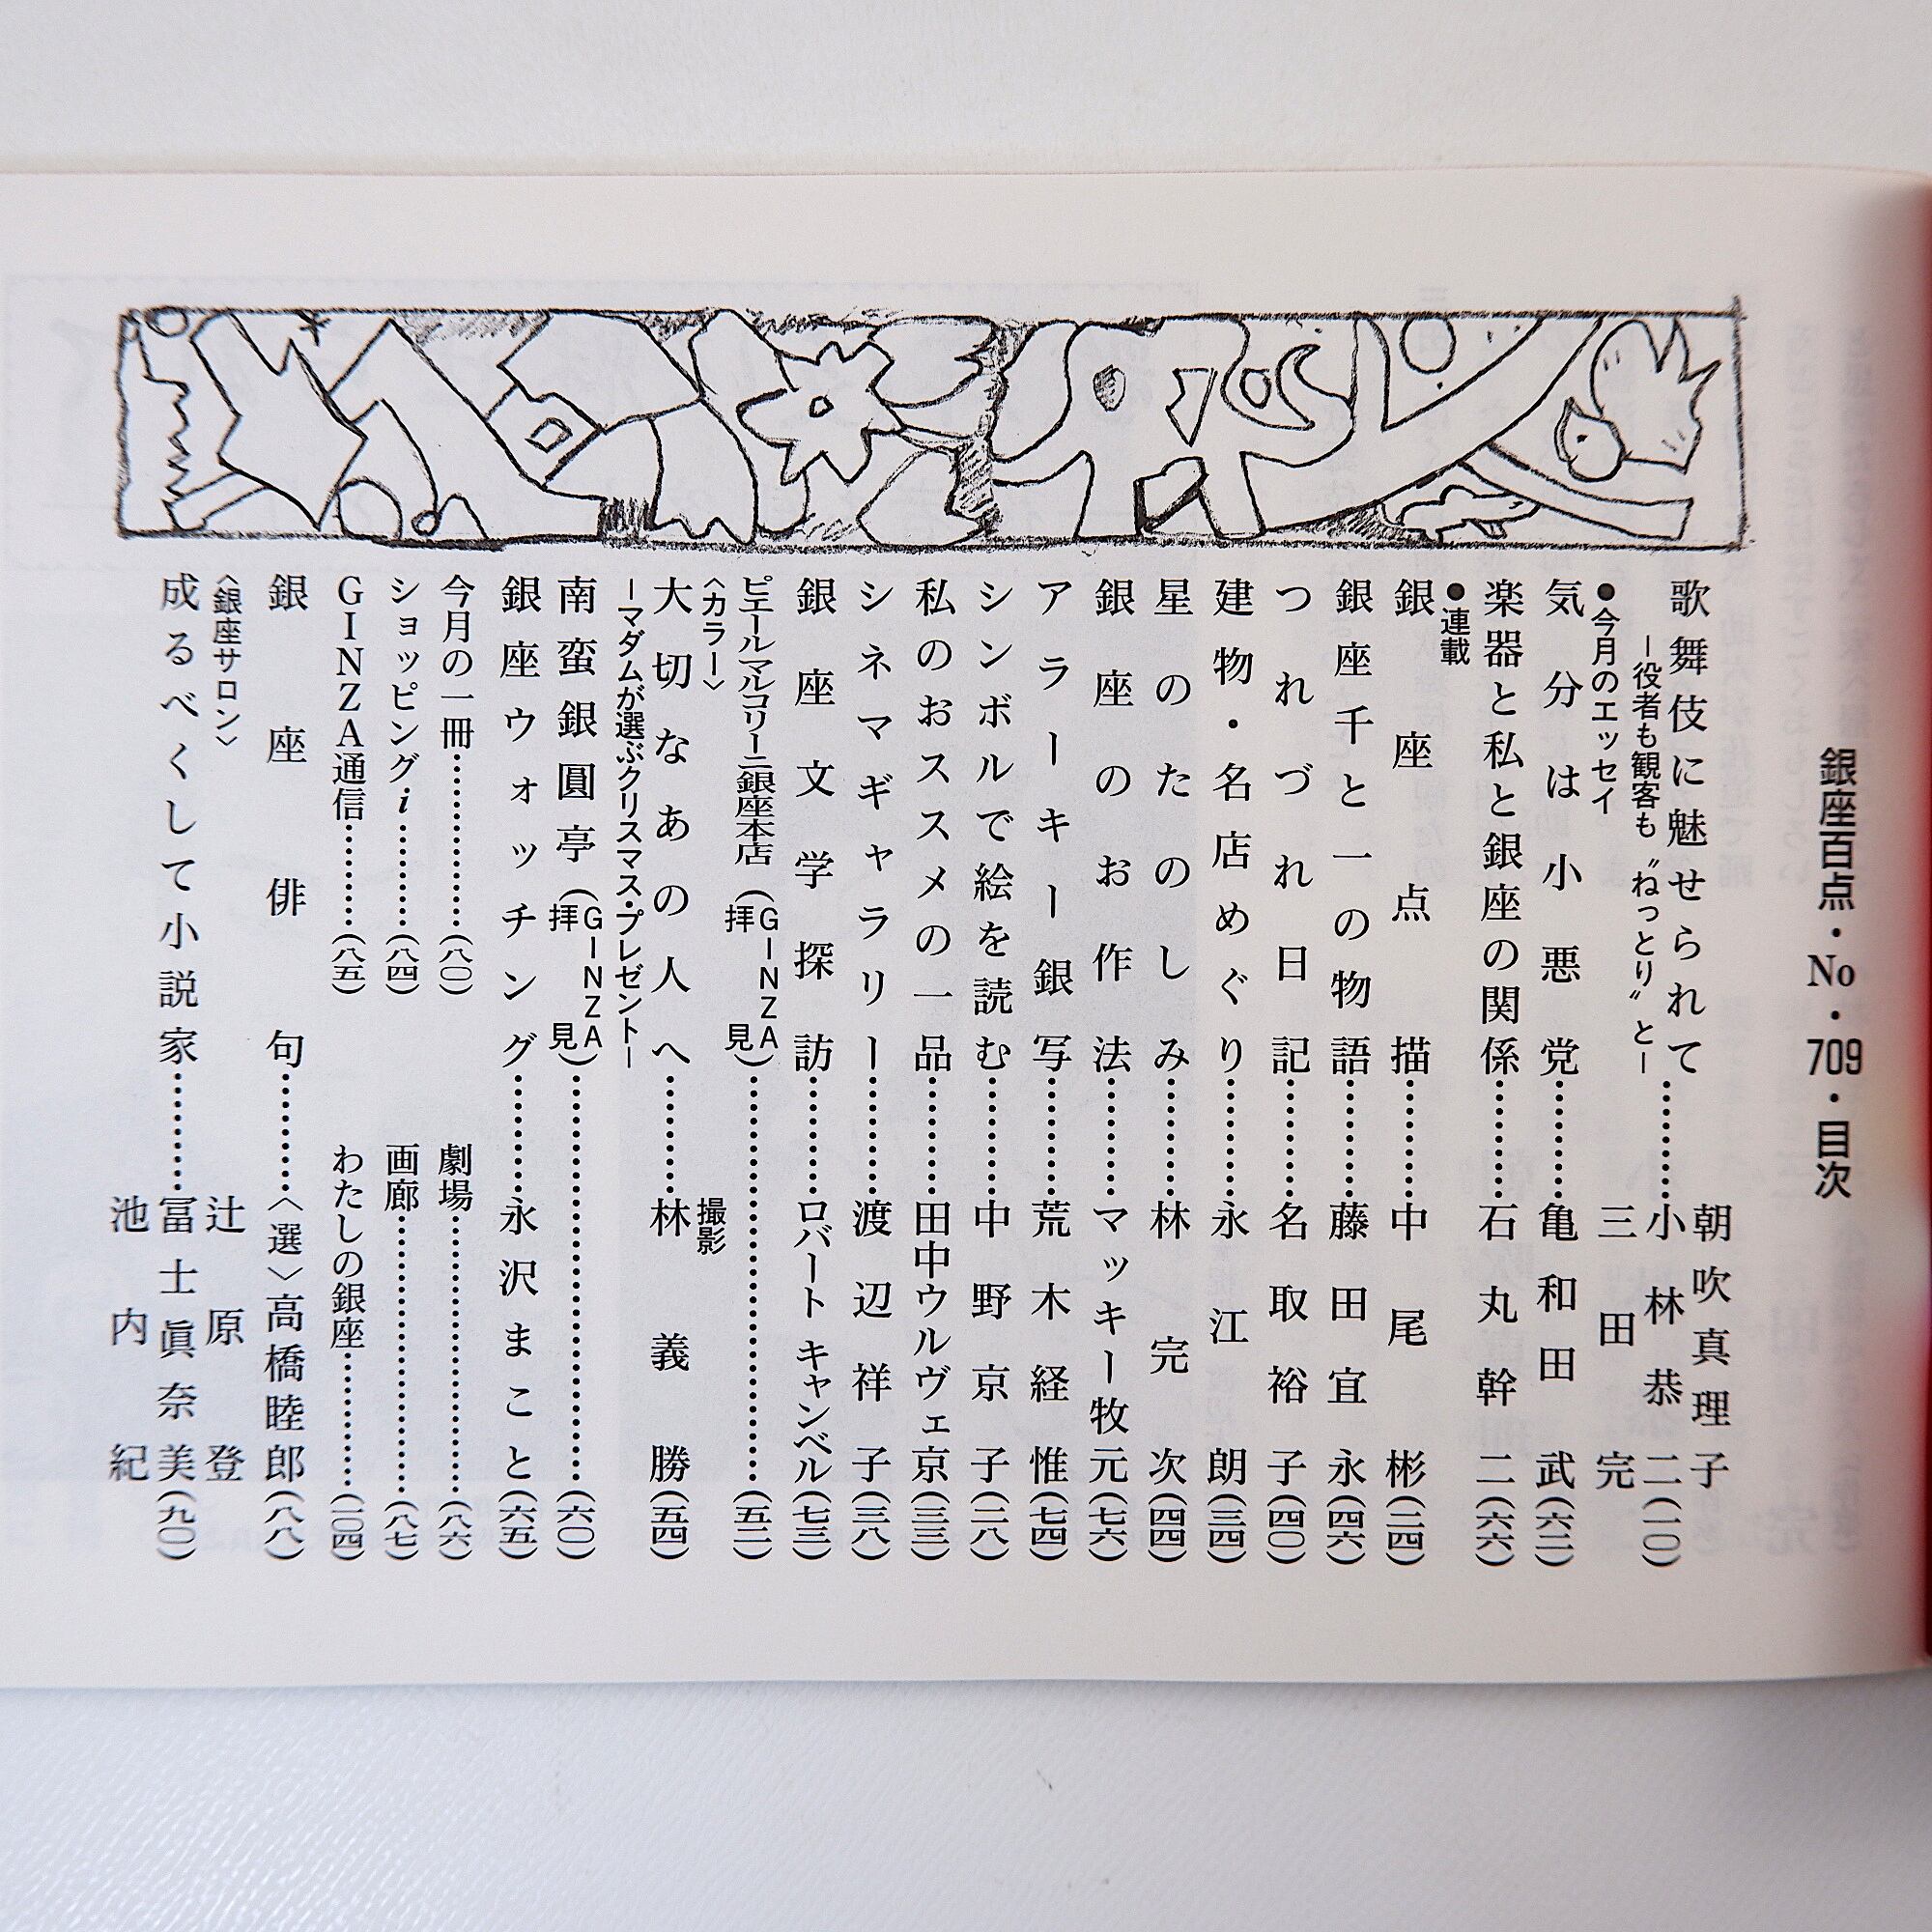 銀座百点・No・709・目次
歌舞伎に魅せられて
―役者も観客も〝ねっとり〟と―
朝吹真理子
小林恭二(一〇)
三田完
●今月のエッセイ
気分は小悪党…………亀和田武(六二)
楽器と私と銀座の関係…………石丸幹二(六六)
●連載
銀座点描…………中尾彬(二四)
銀座千と一の物語…………藤田宜永(四六)
つれづれ日記…………名取裕子(四〇)
建物・名店めぐり…………永江朗(三四)
星のたのしみ…………林完次(四四)
銀座のお作法…………マッキー牧元(七六)
アラーキー銀写…………荒木経惟(七四)
シンボルで絵を読む…………中野京子(二八)
私のおススメの一品…………田中ウルヴェ京(三三)
シネマギャラリー…………渡辺祥子(三八)
銀座文学探訪…………ロバート キャンベル(七三)
ピエールマルコリーニ銀座本店(GINZA拝見)…………(五二)
〈カラー〉
大切なあの人へ…………撮影 林義勝(五四)
―マダムが選ぶクリスマス・プレゼント―
南蛮銀圓亭(GINZA拝見)…………(六〇)
銀座ウォッチング…………永沢まこと(六五)
今月の一冊…………(八〇)
劇場…………(八六)
ショッピングi…………(八四)
画廊…………(八七)
GINZA通信…………(八五)
わたしの銀座…………(一〇四)
銀座俳句…………〈選〉高橋睦郎(八八)
〈銀座サロン〉
成るべくして小説家…………
辻原登
冨士眞奈美(九〇)
池内紀